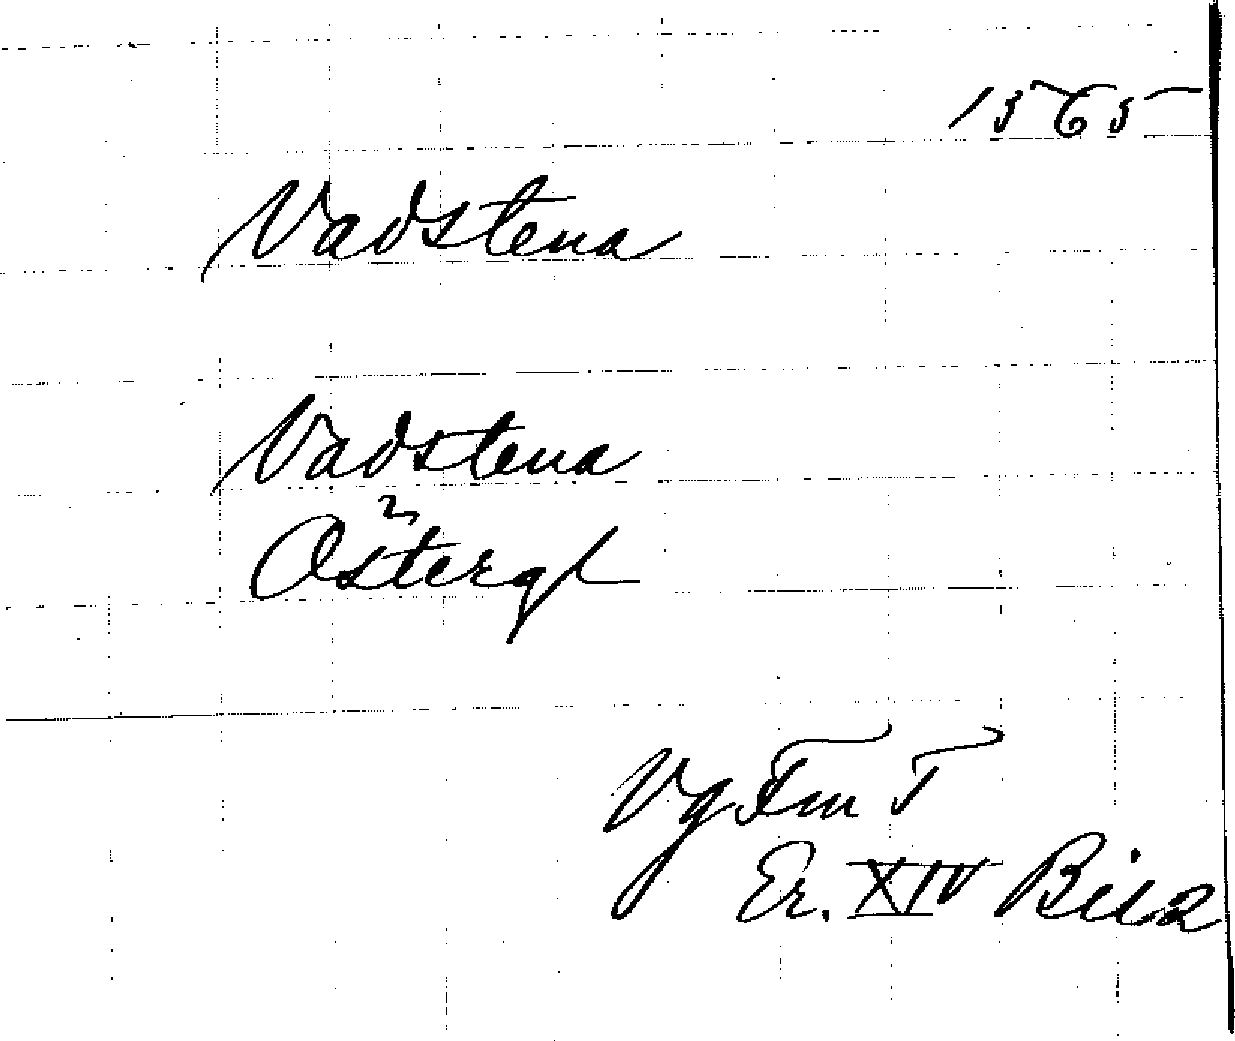 1565
Vadstena
Vadstena
Östergl
Vg Fm T
Er. XIV Bil 2